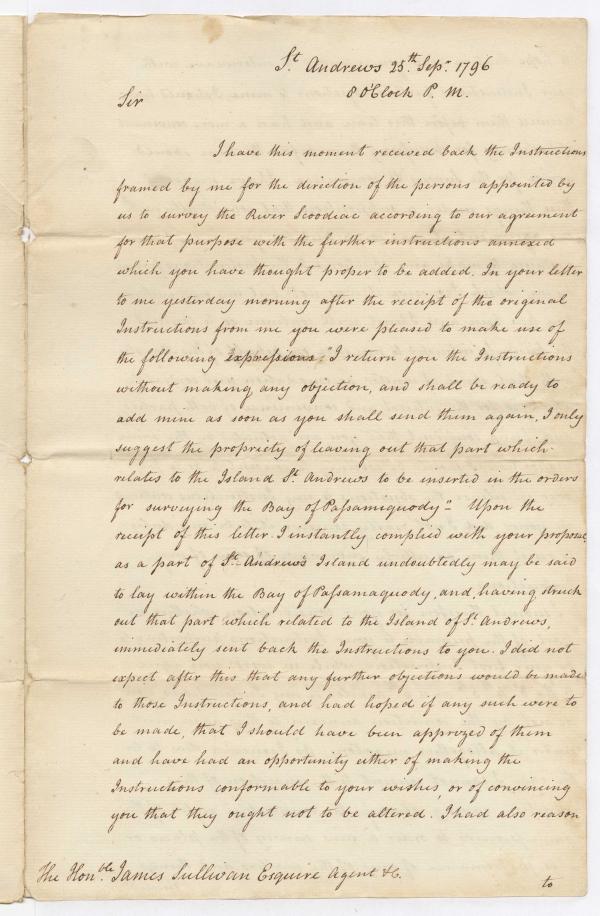 St. Andrews 25th. Sepr. 1796
8 O'Clock P. M.
Sir
I have this moment received back the Instructions
framed by me for the direction of the persons appointed by
us to survey the River Scoodiac according to our agreement
for that purpose with the further instructions annexed
which you have thought proper to be added. In your letter
to me yesterday morning after the receipt of the original
Instructions from me you were pleased to make use of
the following expressions "I return you the Instructions
without making any objection, and shall be ready to
add mine as soon as you shall send them again, I only
suggest the propriety of leaving out that part which
relates to the Island St. Andrews to be inserted in the orders
for surveying the Bay of Passamiquody" Upon the
receipt of this letter I instantly complied with your proposal
as a part of St. Andrew's Island undoubtedly may be said
to lay within the Bay of Passamaquody, and, having struck
out that part which related to the Island of St. Andrews,
immediately sent back the Instructions to you. I did not
expect after this that any further objections would be made
to those Instructions, and had hoped if any such were to
be made, that I should have been apprized of them
and have had an opportunity either of making the
Instructions conformable to your wishes, or of convincing
you that they ought not to be altered. I had also reason
The Honble. James Sullivan Esquire Agent &c.
to